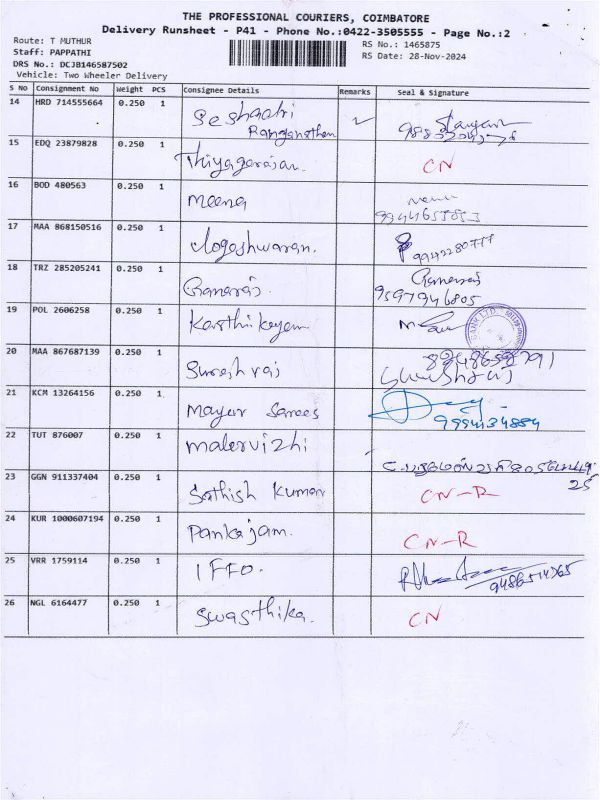 THE PROFESSIONAL COURIERS, COIMBATORE
Delivery Runsheet - P41 - Phone No.:0422-3505555 - Page No.:2
Route: T MUTHUR
RS No.: 1465875
Staff: PAPPATHI
RS Date: 28-Nov-2024
DRS No.: DCJB146587502
Vehicle: Two Wheeler Delivery
S No Consignment No Weight PCS Consignee Details Remarks Seal & Signature
14 HRD 714555664 0.250 1 Seshadri
Ranganathan
15 EDQ 23879828 0.250 1 Thiyagarajan. CN
16 BOD 480563 0.250 1 Meena
9944655853
17 MAA 868150516 0.250 1 Logeshwaran. 9942280777
18 TRZ 285205241 0.250 1 Ramaraj. Ramaraj
9597946805
19 POL 2606258 0.250 1 Karthikeyan
20 MAA 867687139 0.250 1 Sureshraj 8248658791
21 KCM 13264156 0.250 1 Mayur Sarees
9994134884
22 TUT 876007 0.250 1 Malarvizhi
23 GGN 911337404 0.250 1 Sathish Kumar CN-R
24 KUR 1000607194 0.250 1 Pankajam. CN-R
25 VRR 1759114 0.250 1 IFFO.
26 NGL 6164477 0.250 1 Swasthika. CN